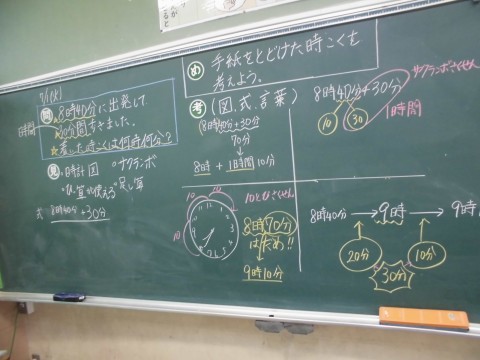 め 手紙をとどけた時こくを
考えよう。
問 8時40分に出発して
30分間歩きました。
着いた時こくは何時何分？
見・時計図
式 8時40分+30分
考 (図、式、言葉)
(8時40分+30分
70分
8時+1時間10分
サクランボさくせん
8時40分+30分
10
30
1時間
10
10
8時70分
はだめ!!
9時10分
8時40分→9時→9時
20分
10分
30分